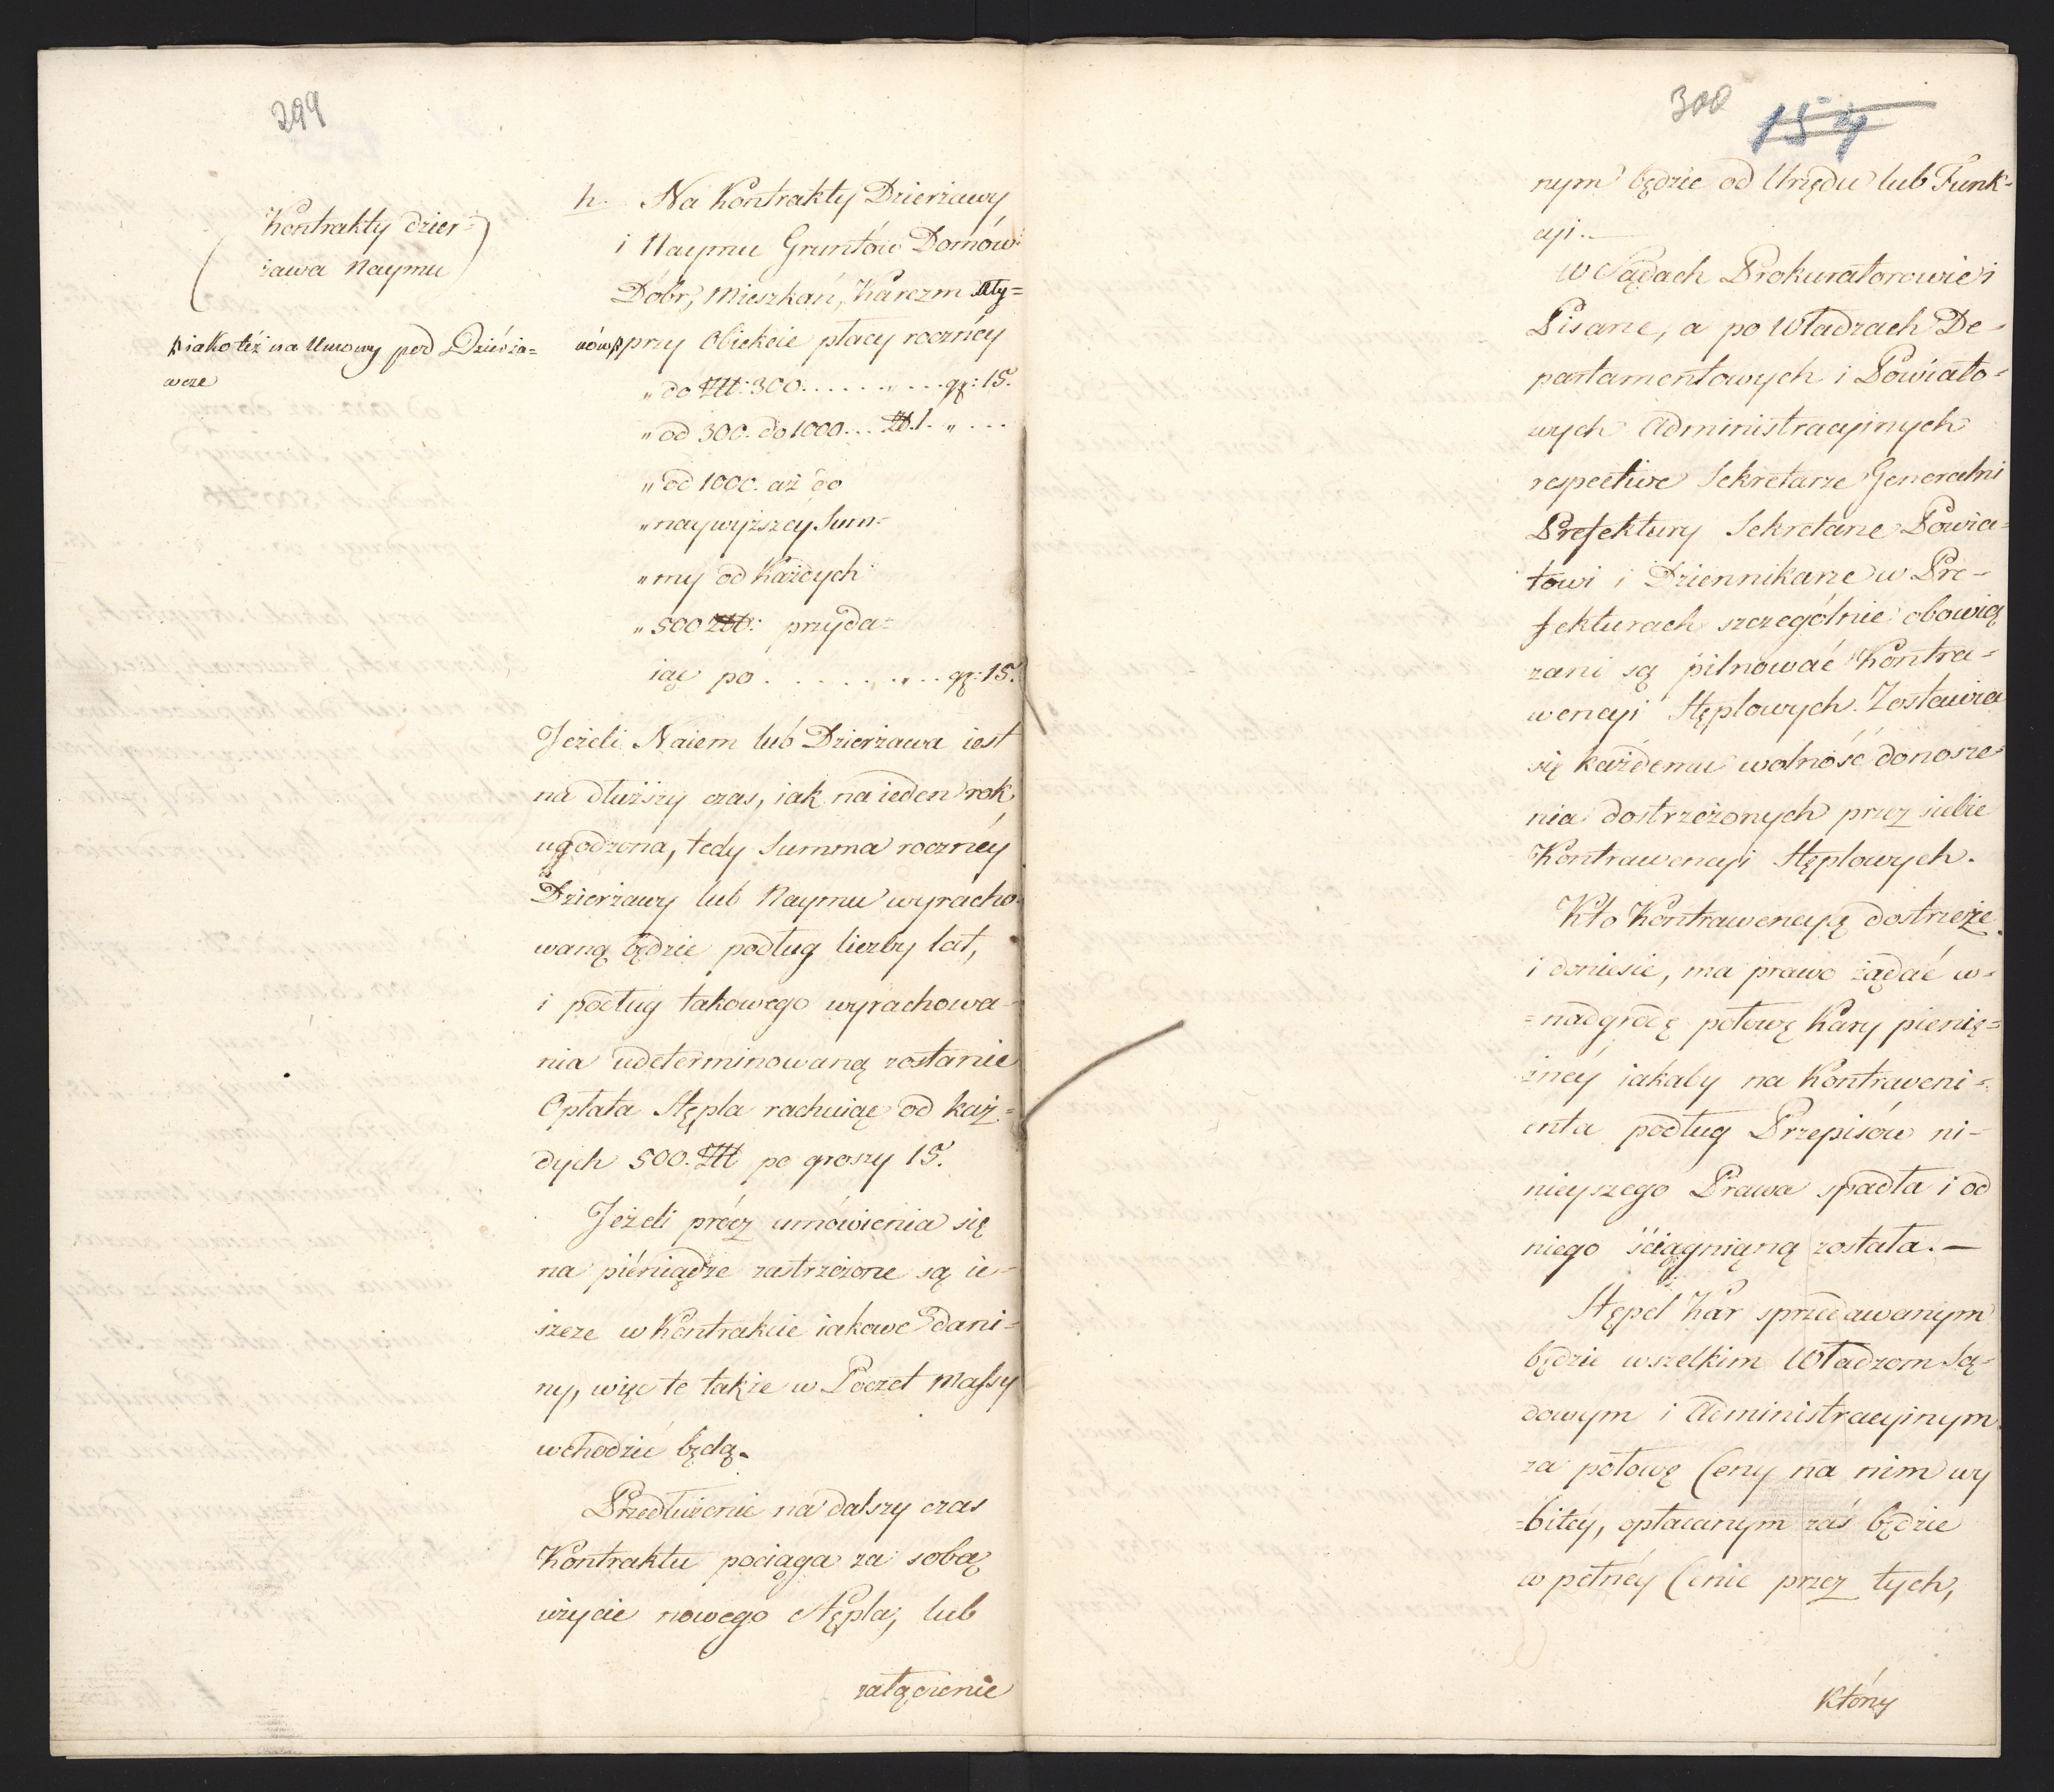 299
Kontrakty dzier-
żawa Naymu
iako też na Umowy pod Dzierża=
wcze
h. Na Kontrakty Dzierżawy
i Naymu Gruntów Domów
Dóbr, Mieszkań, Karczm Mły=
nów przy Obiekcie płacy rocznéy
" do Złł: 300. . . . . . " . . . gr: 15.
" od 300. do 1000. . . Zł. 1. " . . .
" od 1000. aż do
" naywyższey Sum-
" my od Każdych
" 500 Złł: przyda=
iąc po . . . . . . " . . gr: 15.
Jeżeli Naiem lub Dzierżawa iest
na dłuższy czas, iak na ieden rok
ugodzona, tedy Summa rocznéy
Dzierżawy lub Naymu wyracho-
waną będzie podług liczby lat,
i podług takowego wyrachowa-
nia udeterminowaną zostanie
Opłata Stępla rachuiąc od każ=
dych 500. Złł po groszy 15.
Jeżeli prócz umówienia się
na piéniądze zastrzeżone są ie-
szcze w Kontrakcie iakowe dani-
ny, więc te także w Poczet Massy
wchodzić będą.
Przedłużenie na dalszy czas
Kontraktu pociąga za sobą
użycie nowego Stępla, lub
załączenie
300 154
nym będzie od Urzędu lub Funk-
cyi.—
w Sądach Prokuratorowie i
Pisarze, a po Władzach De-
partamentowych i Powiato-
wych Administracyinych
respective Sekretarze Generalni
Prefektury Sekretarze Powia-
towi i Dziennikarze w Pre-
fekturach szczególnie obowią
zani są pilnować Kontra-
wencyi Stęplowych. Zostawia
się każdemu wolność donosze-
nia dostrzeżonych przez siebie
Kontrawencyi Stęplowych.
Kto Kontrawencyą dostrzeże
i doniesie, ma prawo żądać w-
=nadgrodę połowę Kary pienię=
żnéy iakaby na Kontraweni-
enta podług Przepisów ni-
nieyszego Prawa spadła i od
niego ściągniąną została.—
Stępel Kar sprzedawanym
będzie wszelkim Władzom Są-
dowym i Administracyinym
za połowę Ceny na nim wy
=bitéy, opłacanym zaś będzie
w pełnéy Cenie przez tych,
Którzy